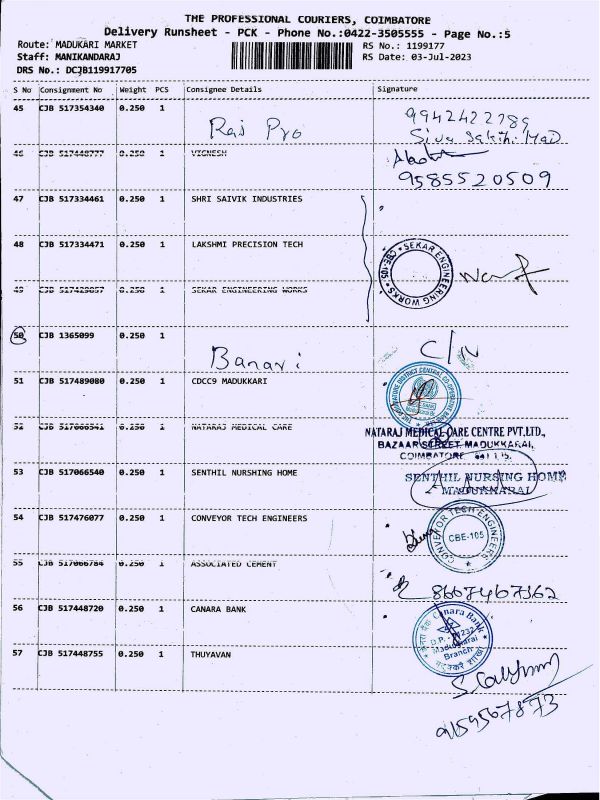 THE PROFESSIONAL COURIERS, COIMBATORE
Delivery Runsheet - PCK - Phone No.:0422-3505555 - Page No.:5
Route: MADUKARI MARKET RS No.: 1199177
Staff: MANIKANDARAJ RS Date: 03-Jul-2023
DRS No.: DCJB119917705
S No Consignment No Weight PCS Consignee Details Signature
45 CJB 517354340 0.250 1 9942422789
Raj Pro Siva Sakthi
46 CJB 517448777 0.250 1 VIGNESH
9585520509
47 CJB 517334461 0.250 1 SHRI SAIVIK INDUSTRIES
48 CJB 517334471 0.250 1 LAKSHMI PRECISION TECH
SEKAR ENGINEERING WORKS
49 CJB 517429857 0.250 1 SEKAR ENGINEERING WORKS
50 CJB 1365099 0.250 1
Banari C/N
51 CJB 517489080 0.250 1 CDCC9 MADUKKARI
52 CJB 517066541 0.250 1 NATARAJ MEDICAL CARE NATARAJ MEDICAL CARE CENTRE PVT.LTD.,
BAZAAR STREET, MADUKKARAI,
COIMBATORE
53 CJB 517066540 0.250 1 SENTHIL NURSHING HOME SENTHIL NURSING HOME
MADUKKARAI
54 CJB 517476077 0.250 1 CONVEYOR TECH ENGINEERS
CONVEYOR TECH ENGINEERS
CBE-105
55 CJB 517066784 0.250 1 ASSOCIATED CEMENT
8667467362
56 CJB 517448720 0.250 1 CANARA BANK
Canara Bank
Madukkarai
Branch
57 CJB 517448755 0.250 1 THUYAVAN
9159567873